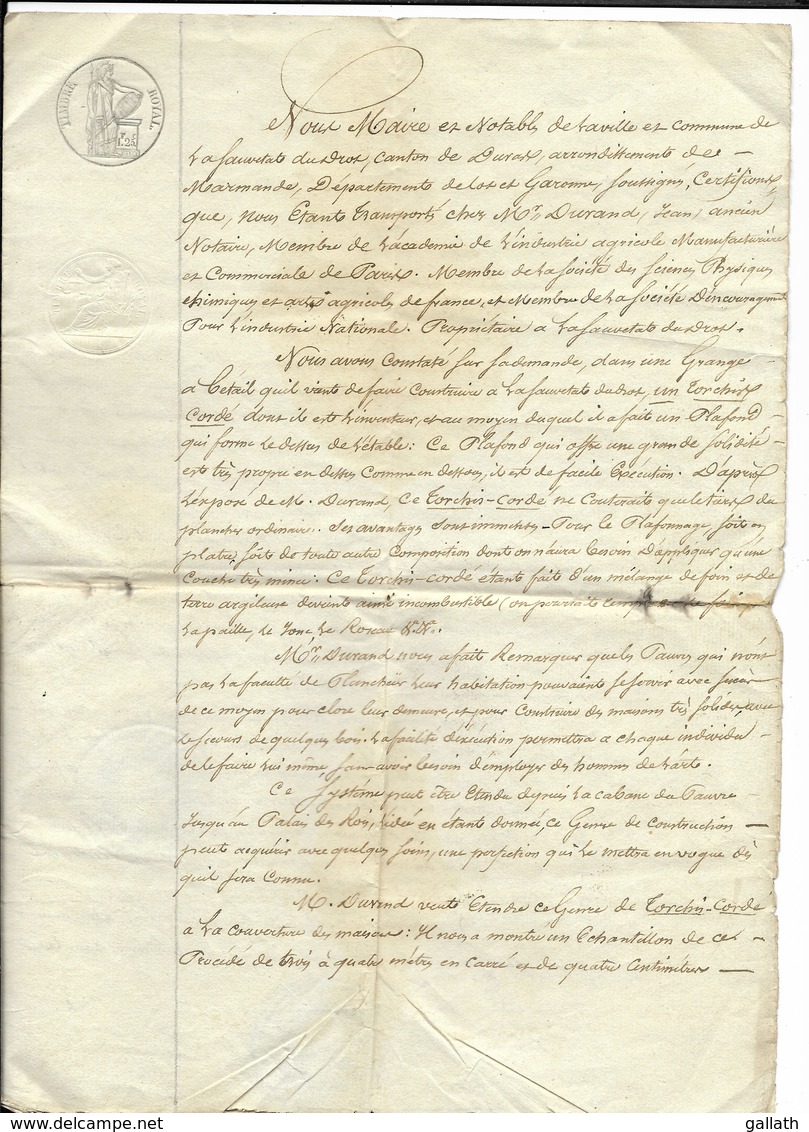 TIMBRE ROYAL
1.25
Nous Maire et Notables de la ville et commune de
La Sauvetat du drot, canton de Duras, arrondissements de
Marmande, Département de lot et Garonne, soussignés, Certifions
que, nous Etants transportés chez Mr. Durand, Jean, ancien
Notaire, Membre de L'académie de L'industrie agricole Manufacturière
et Commerciale de Paris. Membre de La Société des Sciences Physiques
chimiques et arts agricoles de france, et Membre de La Société D'encouragement
Pour L'industrie Nationale. Propriétaire a La Sauvetat du drot.
Nous avons Constaté sur sa demande, dans une Grange
a Bétail qu'il vient de faire Construire a La Sauvetat du drot, un Torchis
Cordé dont il est L'inventeur, et au moyen duquel il a fait un Plafond
qui forme Le dessus de L'étable: Ce Plafond qui offre une grande solidité
est très propre en dessus Comme en dessous, il est de facile Execution. D'après
L'exposé de M. Durand, Ce Torchis-Cordé ne Couterait que le tiers du
plancher ordinaire. Ses avantages sont immenses Pour Le Plafonnage, soit en
platre, soit de toute autre Composition dont on n'aura besoin D'appliquer qu'une
Couche très mince: Ce Torchis-Cordé étant fait d'un mélange de foin et de
terre argileuse devient ainsi incombustible (on pourrait
La paille, Le Jonc, Le Roseau &a. &a.
Mr. Durand nous a fait Remarquer que les Pauvres qui n'ont
pas La faculté de Plancheïr Leur habitation pouvaient se servir avec succès
de ce moyen pour clore leur demeure, et pour Construire des maisons très solides, avec
Le secours de quelques bois. La facilité d'exécution permettra a chaque individu
de le faire Lui même, sans avoir besoin d'employer des hommes de L'art.
Ce Système peut être Etendu depuis La cabane du Pauvre
Jusqu'au Palais des Rois, L'idée en étant donnée, ce Genre de Construction
peut acquérir avec quelques soins, une perfection qui Le mettra en vogue dès
qu'il sera Connu.
M. Durand veut Etendre ce Genre de Torchis-Cordé
a La couverture des maisons: Il nous a montré un Echantillon de ce
Procédé de trois à quatre mètres en Carré et de quatre Centimètres
delcampe.net
gallath